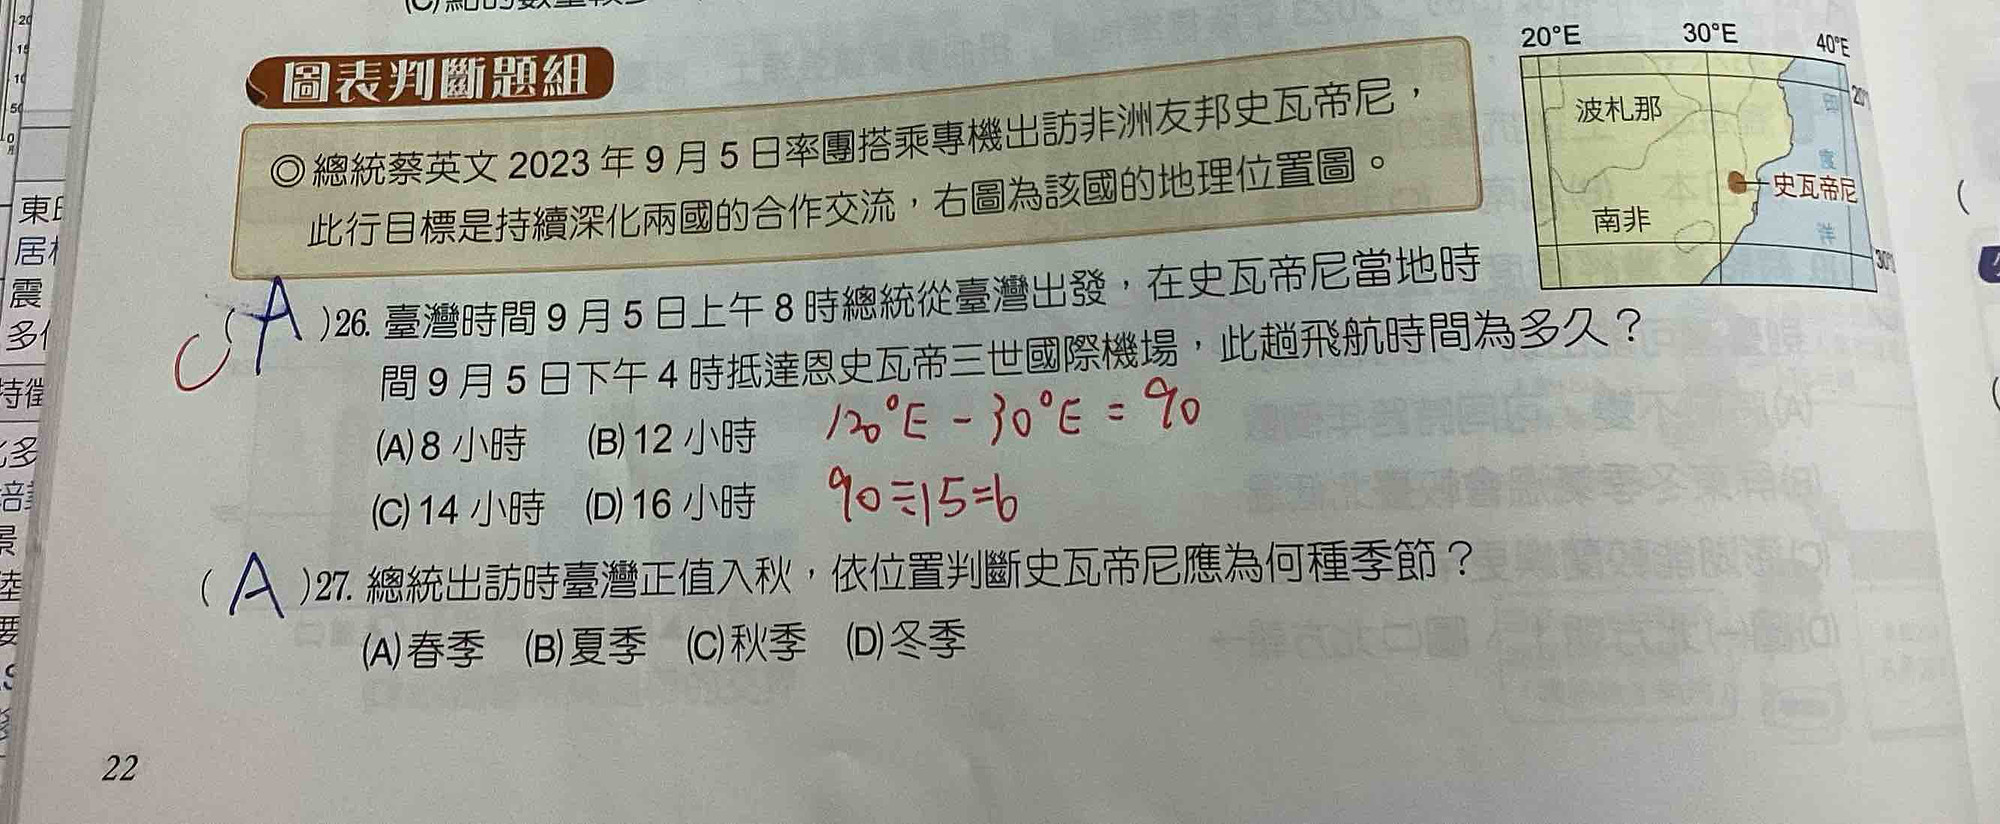 20°E
30°E
40°E
圖表判斷題組
◎總統蔡英文 2023 年 9 月 5 日率團搭乘專機出訪非洲友邦史瓦帝尼，
此行目標是持續深化兩國的合作交流，右圖為該國的地理位置圖。
波札那
史瓦帝尼
南非
C
( A )26. 臺灣時間 9 月 5 日上午 8 時總統從臺灣出發，在史瓦帝尼當地時
間 9 月 5 日下午 4 時抵達恩史瓦帝三世國際機場，此趟飛航時間為多久？
(A) 8 小時 (B) 12 小時
120°E - 30°E = 90
(C) 14 小時 (D) 16 小時
90÷15=6
( A )27. 總統出訪時臺灣正值入秋，依位置判斷史瓦帝尼應為何種季節？
(A) 春季 (B) 夏季 (C) 秋季 (D) 冬季
22